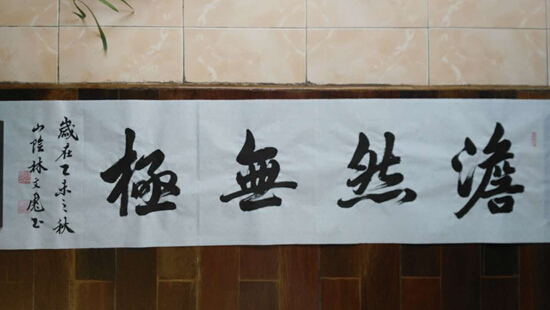 澹然無極
歲在乙未之秋
山陰林文彪书